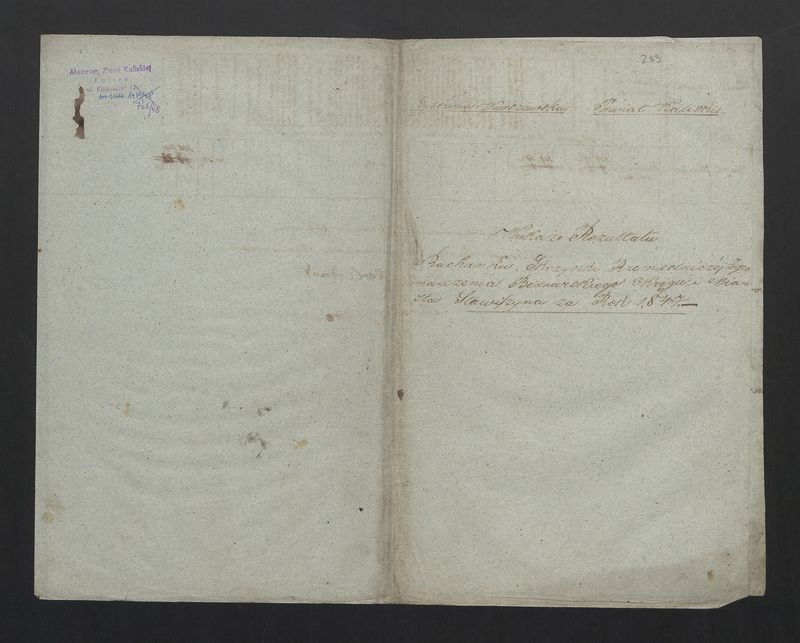 Muzeum Ziemi Kaliskiej
Kalisz
ul. Kościuszki 12
768/48
233
Gubernia Warszawska Powiat Kaliski
Wykaz Rezultatu
Rachunku Skrzynki Rzemieślniczej Zgro-
madzenia Bednarskiego Okręgu i Mia-
sta Stawiszyna za Rok 1847.